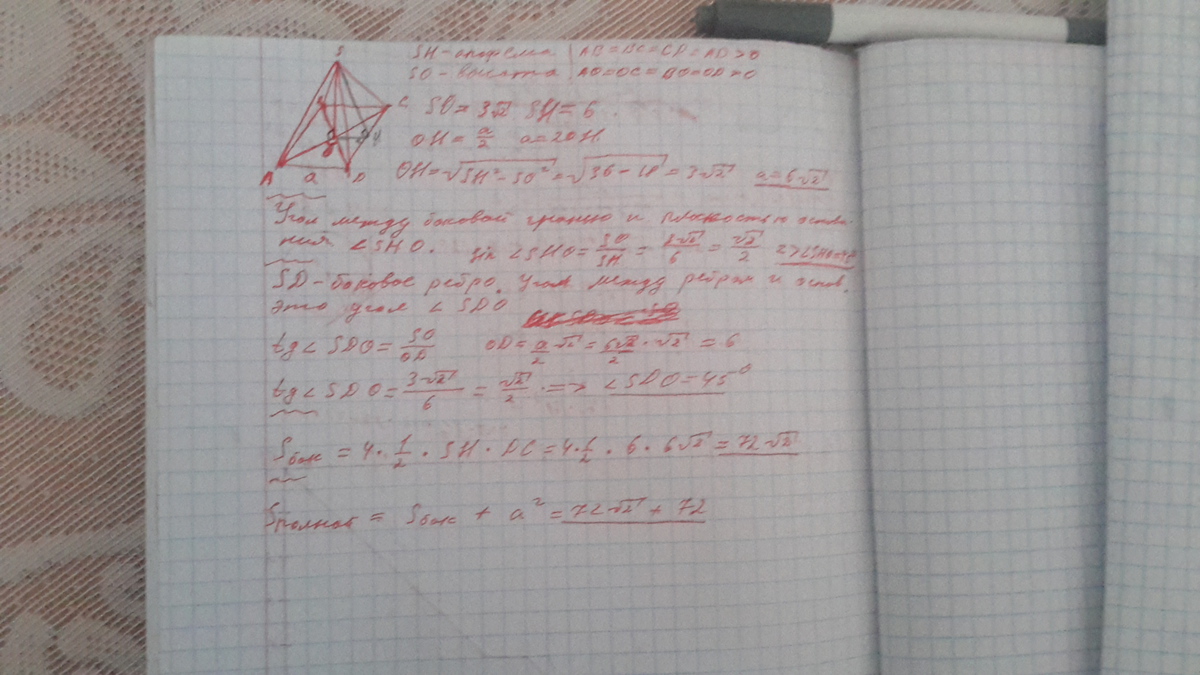 S
B
C
H
O
A
a
D
SH – апофема | AB = BC = CD = AD > 0
SO – высота | AO = OC = BO = OD > 0
SO = 3√2 SH = 6
OH = a/2 a = 2OH
OH = √(SH² – SO²) = √(36 – 18) = 3√2 a = 6√2
Угол между боковой гранью и плоскостью основа-
ния ∠SHO. sin ∠SHO = SO/SH = 3√2/6 = √2/2 => ∠SHO = 45°
SD – боковое ребро. Угол между ребром и основ.
это угол ∠SDO
tg∠SDO = SO/OD OD = a/2 √2 = 6√2/2 · √2 = 6
tg∠SDO = 3√2/6 = √2/2 => ∠SDO = 45°
Sбок = 4 · 1/2 · SH · DC = 4 · 1/2 · 6 · 6√2 = 72√2
Sполной = Sбок + a² = 72√2 + 72